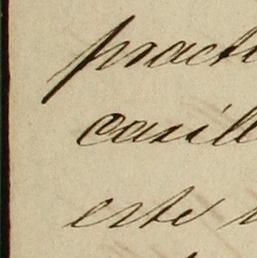 practi
casill
este